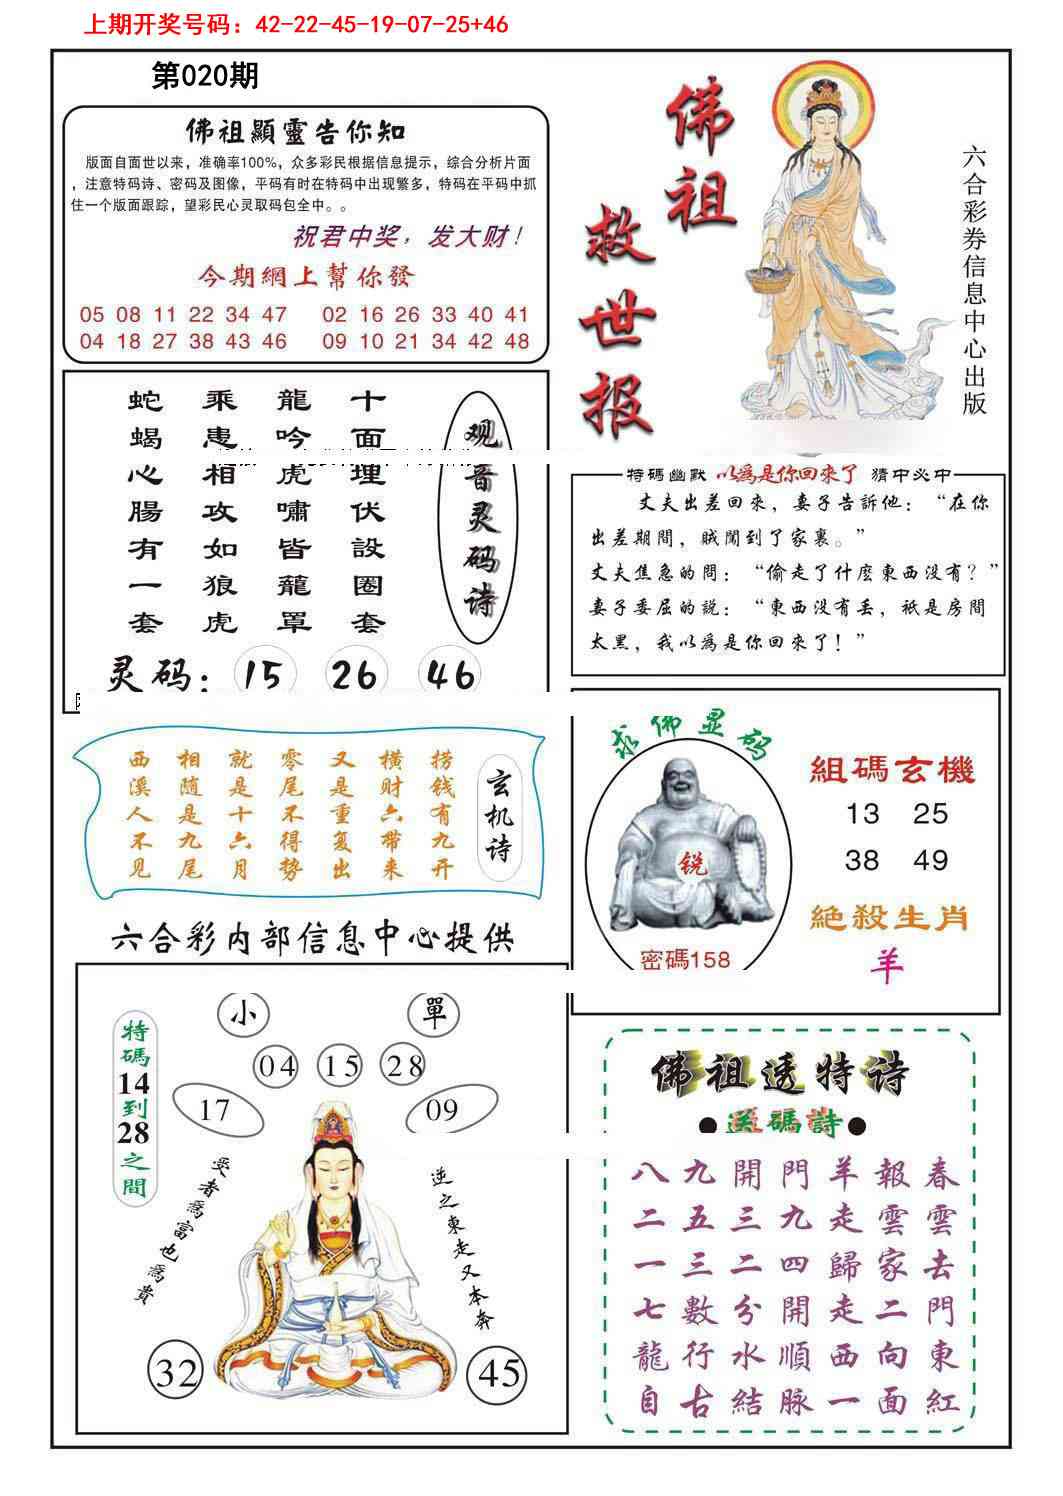 上期开奖号码：42-22-45-19-07-25+46
第020期
佛祖顯靈告你知
版面自面世以来，准确率100%，众多彩民根据信息提示，综合分析片面
，注意特码诗、密码及图像，平码有时在特码中出现繁多，特码在平码中抓
住一个版面跟踪，望彩民心灵取码包全中。。
祝君中奖，发大财！
今期網上幫你發
05 08 11 22 34 47 02 16 26 33 40 41
04 18 27 38 43 46 09 10 21 34 42 48
佛祖
救世报
六合彩券信息中心出版
观音灵码诗
十面埋伏設圈套
龍吟虎嘯皆籠罩
乘患相攻如狼虎
蛇蝎心腸有一套
灵码：15 26 46
特碼幽默 以為是你回來了 猜中必中
丈夫出差回來，妻子告訴他：“在你
出差期間，賊闖到了家裏。”
丈夫焦急的問：“偷走了什麼東西没有？”
妻子委屈的説：“東西没有丢，祇是房間
太黑，我以為是你回來了！”
玄机诗
捞钱有九开
横财六带来
又是重复出
零尾不得势
就是十六月
相随是九尾
西溪人不见
求佛显码
锐
密碼158
組碼玄機
13 25
38 49
絶殺生肖
羊
六合彩内部信息中心提供
特碼14到28之間
小 單
04 15 28
17 09
受者為富也為貴
逆之東走又本奔
32 45
佛祖透特诗
●送碼詩●
八九開門羊報春
二五三九走雲雲
一三二四歸家去
七數分開走二門
龍行水順西向東
自古結脉一面紅